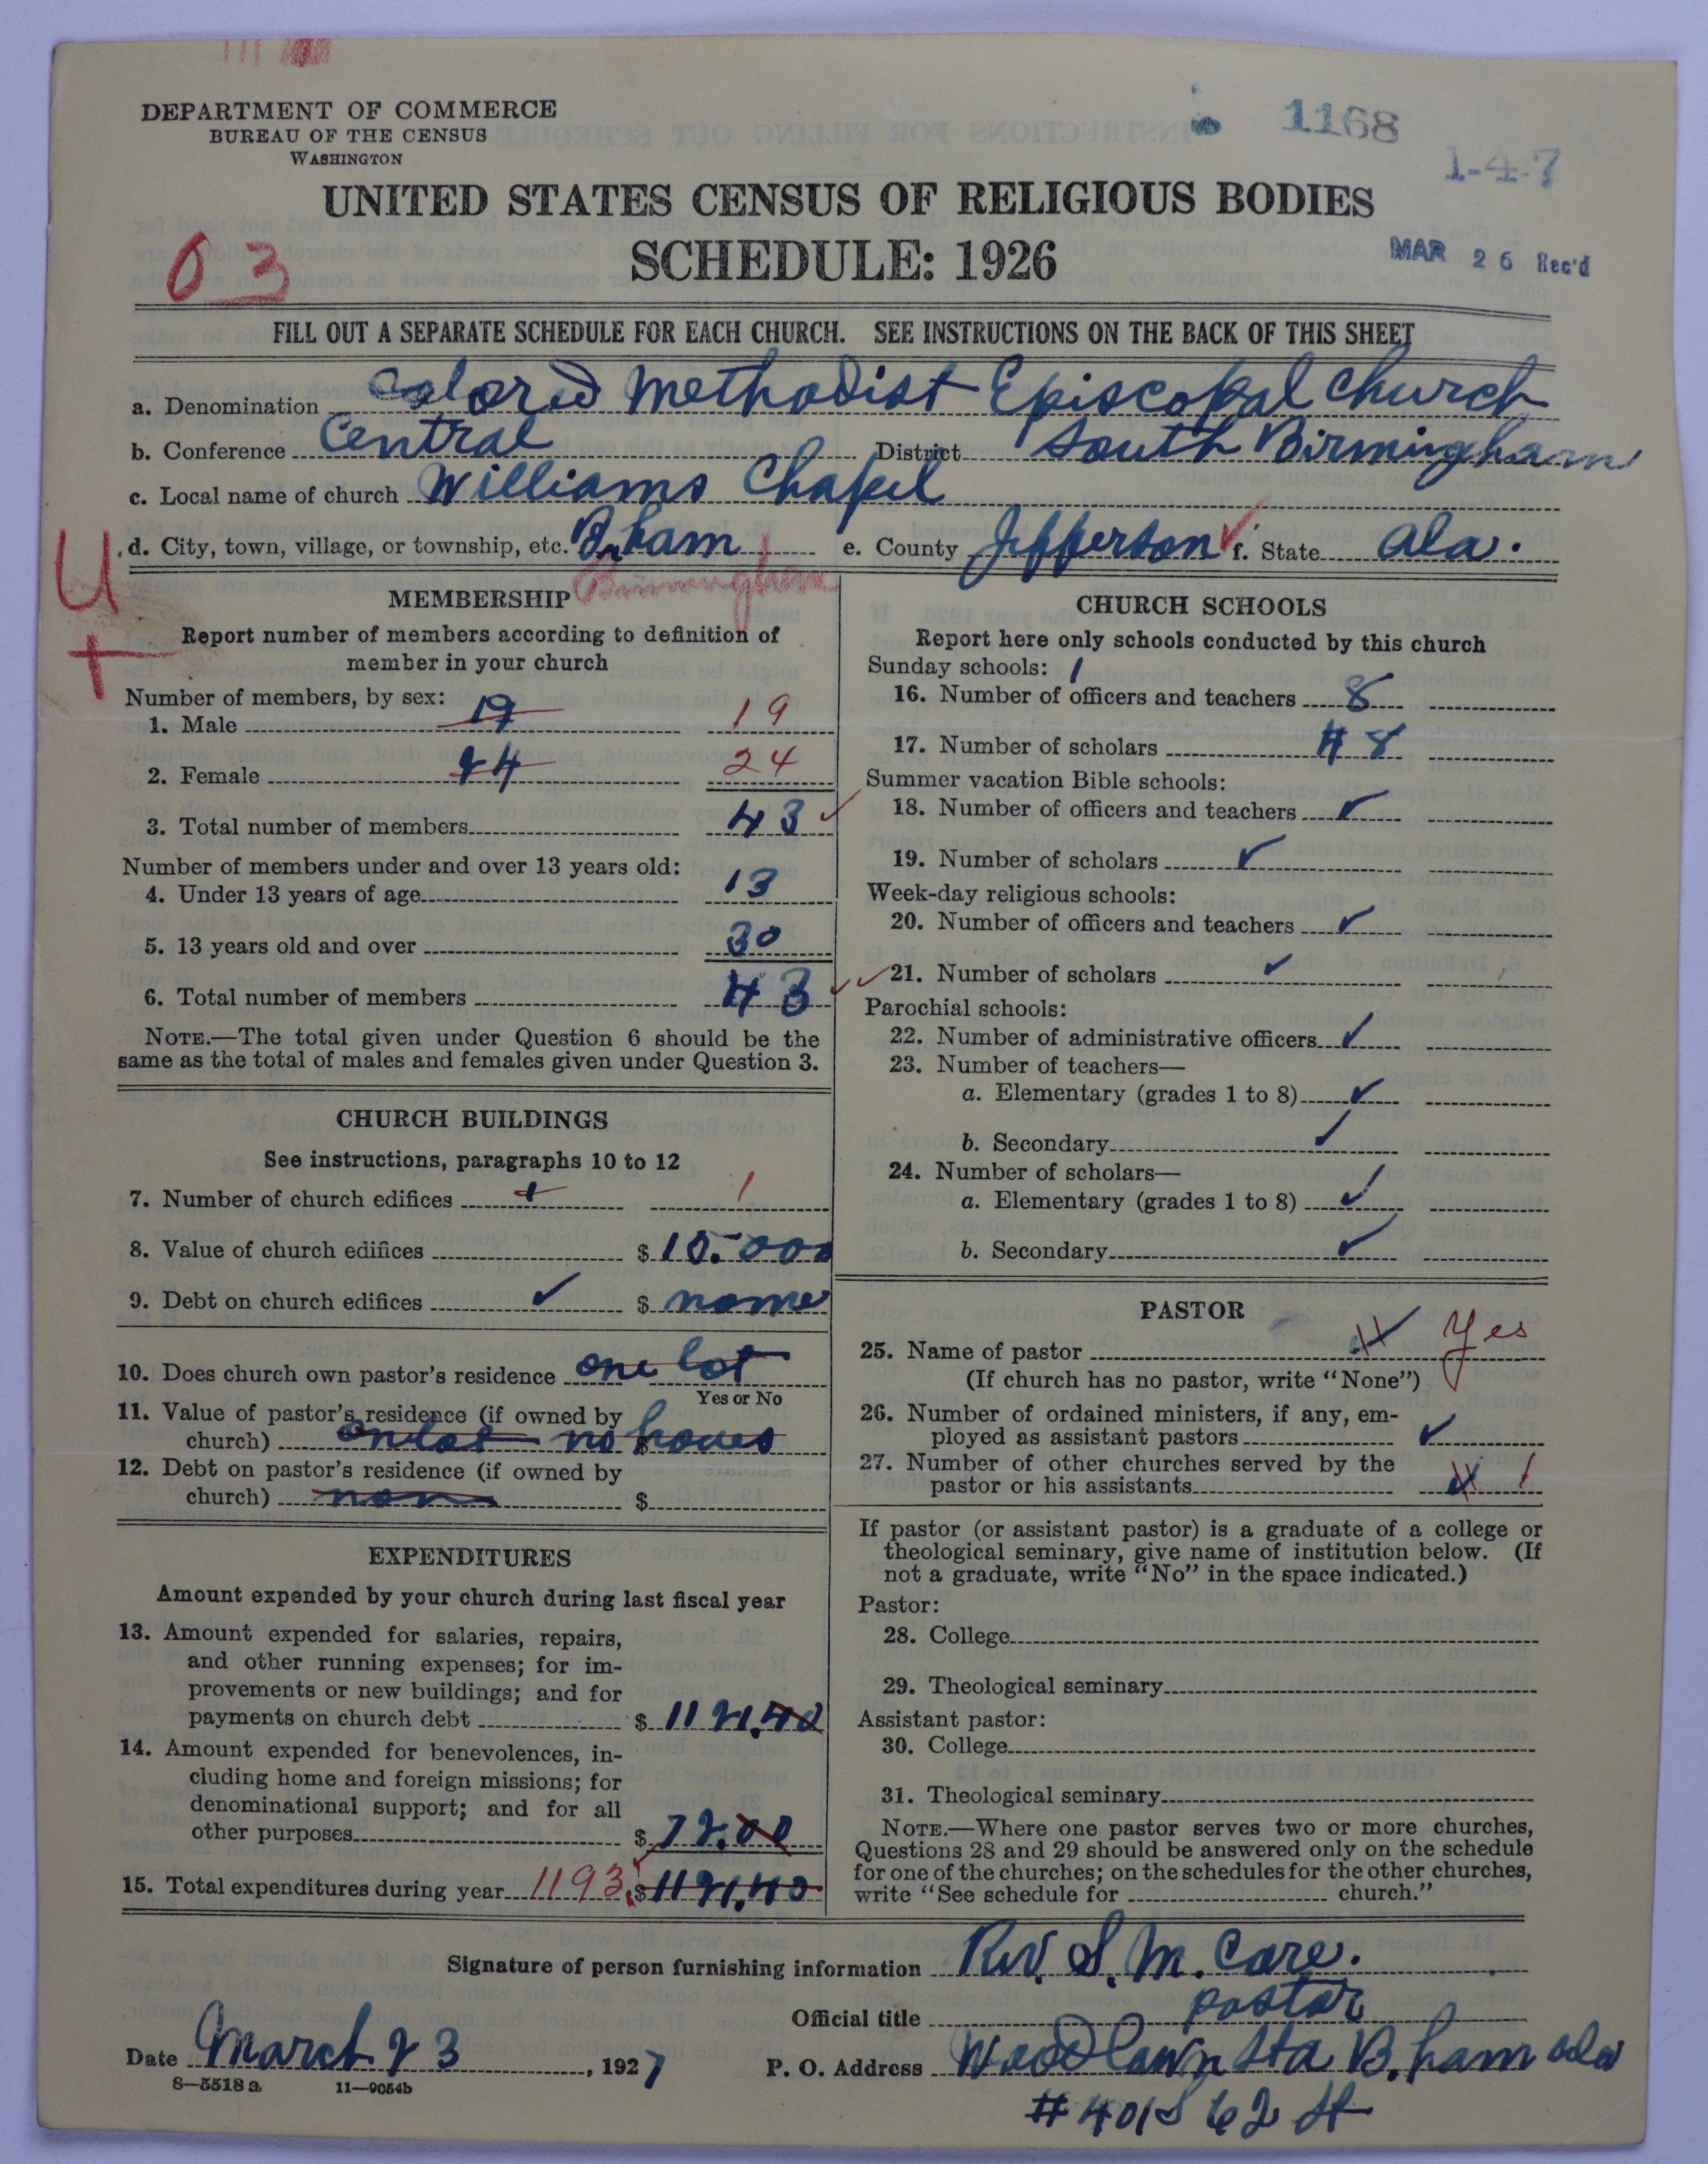 DEPARTMENT OF COMMERCE
BUREAU OF THE CENSUS
WASHINGTON
1168
1-4-7
UNITED STATES CENSUS OF RELIGIOUS BODIES
SCHEDULE: 1926
03
MAR 26 Rec'd
FILL OUT A SEPARATE SCHEDULE FOR EACH CHURCH. SEE INSTRUCTIONS ON THE BACK OF THIS SHEET
a. Denomination Colored Methodist Episcopal Church
b. Conference Central District South Birmingham
c. Local name of church Williams Chapel
d. City, town, village, or township, etc. B.ham e. County Jefferson f. State Ala.
Birmingham
U
+
MEMBERSHIP
Report number of members according to definition of
member in your church
Number of members, by sex:
1. Male 19 19
2. Female 24 24
3. Total number of members 43
Number of members under and over 13 years old:
4. Under 13 years of age 13
5. 13 years old and over 30
6. Total number of members 43
NOTE.—The total given under Question 6 should be the
same as the total of males and females given under Question 3.
CHURCH BUILDINGS
See instructions, paragraphs 10 to 12
7. Number of church edifices 1
8. Value of church edifices $ 15.000
9. Debt on church edifices $ none
10. Does church own pastor's residence one lot
Yes or No
11. Value of pastor's residence (if owned by
church) on lot no $ houes
12. Debt on pastor's residence (if owned by
church) non $
EXPENDITURES
Amount expended by your church during last fiscal year
13. Amount expended for salaries, repairs,
and other running expenses; for im-
provements or new buildings; and for
payments on church debt $ 1121.40
14. Amount expended for benevolences, in-
cluding home and foreign missions; for
denominational support; and for all
other purposes $ 72.00
15. Total expenditures during year 1193 $ 1121.40
CHURCH SCHOOLS
Report here only schools conducted by this church
Sunday schools: 1
16. Number of officers and teachers 8
17. Number of scholars # 8
Summer vacation Bible schools:
18. Number of officers and teachers
19. Number of scholars
Week-day religious schools:
20. Number of officers and teachers
21. Number of scholars
Parochial schools:
22. Number of administrative officers
23. Number of teachers—
a. Elementary (grades 1 to 8)
b. Secondary
24. Number of scholars—
a. Elementary (grades 1 to 8)
b. Secondary
PASTOR
25. Name of pastor Yes
(If church has no pastor, write "None")
26. Number of ordained ministers, if any, em-
ployed as assistant pastors
27. Number of other churches served by the
pastor or his assistants 1
If pastor (or assistant pastor) is a graduate of a college or
theological seminary, give name of institution below. (If
not a graduate, write "No" in the space indicated.)
Pastor:
28. College
29. Theological seminary
Assistant pastor:
30. College
31. Theological seminary
NOTE.—Where one pastor serves two or more churches,
Questions 28 and 29 should be answered only on the schedule
for one of the churches; on the schedules for the other churches,
write "See schedule for church."
Signature of person furnishing information Rev. S. M. Care.
Official title pastor
Date March 23, 1927 P. O. Address Woodlawn Sta B.ham ala
8—5518 a 11—9054b
# 401 S 62 St